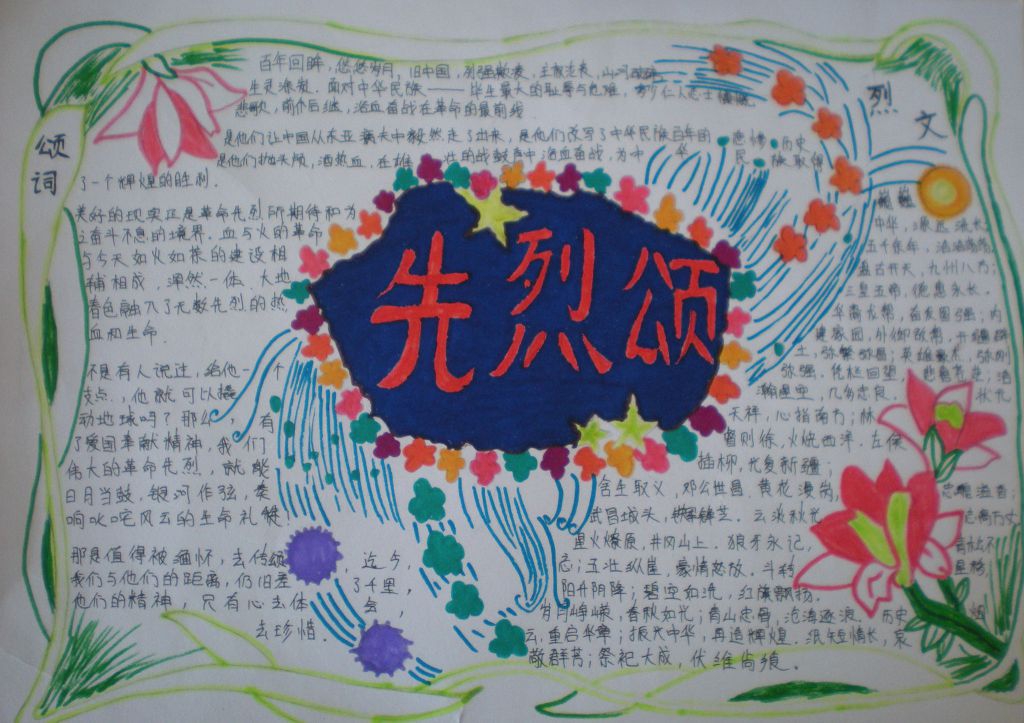 颂词
百年回眸，悠悠岁月，旧中国，列强欺凌，主权沦丧，山河破碎，
生灵涂炭。面对中华民族——毕生最大的耻辱与危难，多少仁人志士慷慨
悲歌，前仆后继，浴血奋战在革命的最前线
是他们让中国从东亚病夫中毅然走了出来，是他们改写了中华民族百年的悲惨历史
是他们抛头颅，洒热血，在雄壮的战鼓声中浴血奋战，为中华民族取得
了一个辉煌的胜利．
美好的现实正是革命先烈所期待和为
之奋斗不息的境界．血与火的革命
与今天如火如荼的建设相
辅相成，浑然一体．大地
春色融入了无数先烈的热
血和生命．
不是有人说过，给他一个
支点．，他就可以撬
动地球吗？那么，有
了爱国奉献精神，我们
伟大的革命先烈．，就能
日月当鼓，银河作弦，奏
响叱咤风云的生命礼赞！
那是值得被缅怀，去传颂
迄今，
我们与他们的距离，仍旧差
了千里，
他们的精神，只有心去体会，
去珍惜．
先烈颂
烈文
巍巍
中华，源远流长；
五千余年，浩浩荡荡
盘古开天，九州八方；
三皇五帝，德惠永长．
华裔龙帮，奋发图强；内
建家园，外御敌帮．开疆辟
土，弥繁弥昌；英雄豪杰，弥刚
弥强．凭栏回望，
瀚星空，几多忠良．
天祥，心指南方；林
则徐，火烧西洋．左保
插柳，光复新疆；
舍生取义，邓公世昌．黄花漫岗，
武昌城头，云淡秋光
星火燎原，井冈山上．狼牙永记，
忘；五壮纵崖，豪情怒放．斗转
星移，
阳升阴降；碧空如洗，红旗飘扬．
岁月峥嵘，春秋如光；青山忠骨，沧海逐浪．历史
云．重启华章；振兴中华，再造辉煌．纸短情长，哀
敬群芳；祭祀大成，伏维尚飨．